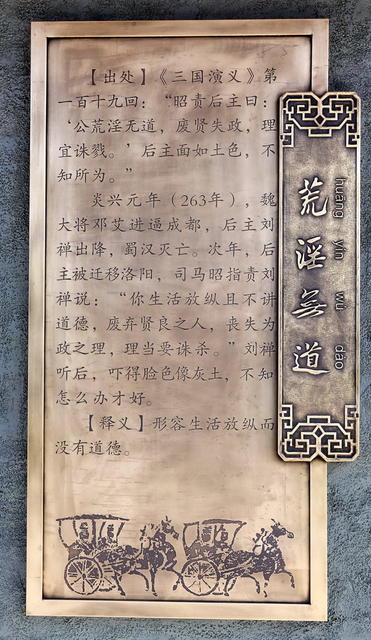 【出处】《三国演义》第
一百十九回：“昭责后主曰：
‘公荒淫无道，废贤失政，理
宜诛戮。’后主面如土色，不
知所为。”
炎兴元年（263年），魏
大将邓艾进逼成都，后主刘
禅出降，蜀汉灭亡。次年，后
主被迁移洛阳，司马昭指责刘
禅说：“你生活放纵且不讲
道德，废弃贤良之人，丧失为
政之理，理当要诛杀。”刘禅
听后，吓得脸色像灰土，不知
怎么办才好。
【释义】形容生活放纵而
没有道德。
荒淫無道
huang yin wu dao